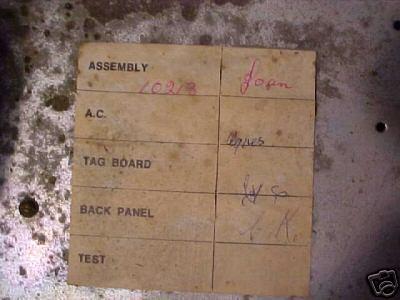 ASSEMBLY Joan
10213
A.C.
Agnes
TAG BOARD
BACK PANEL K.
TEST